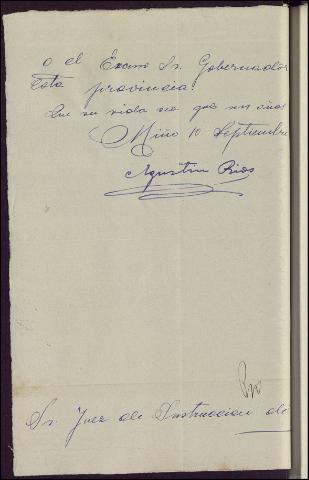 o el Excmo Sr. Gobernador
Esta provincia.
Cuya vida
Miño 10 Septiembre
Agustin Rios
Sr. Juez de Instruccion de